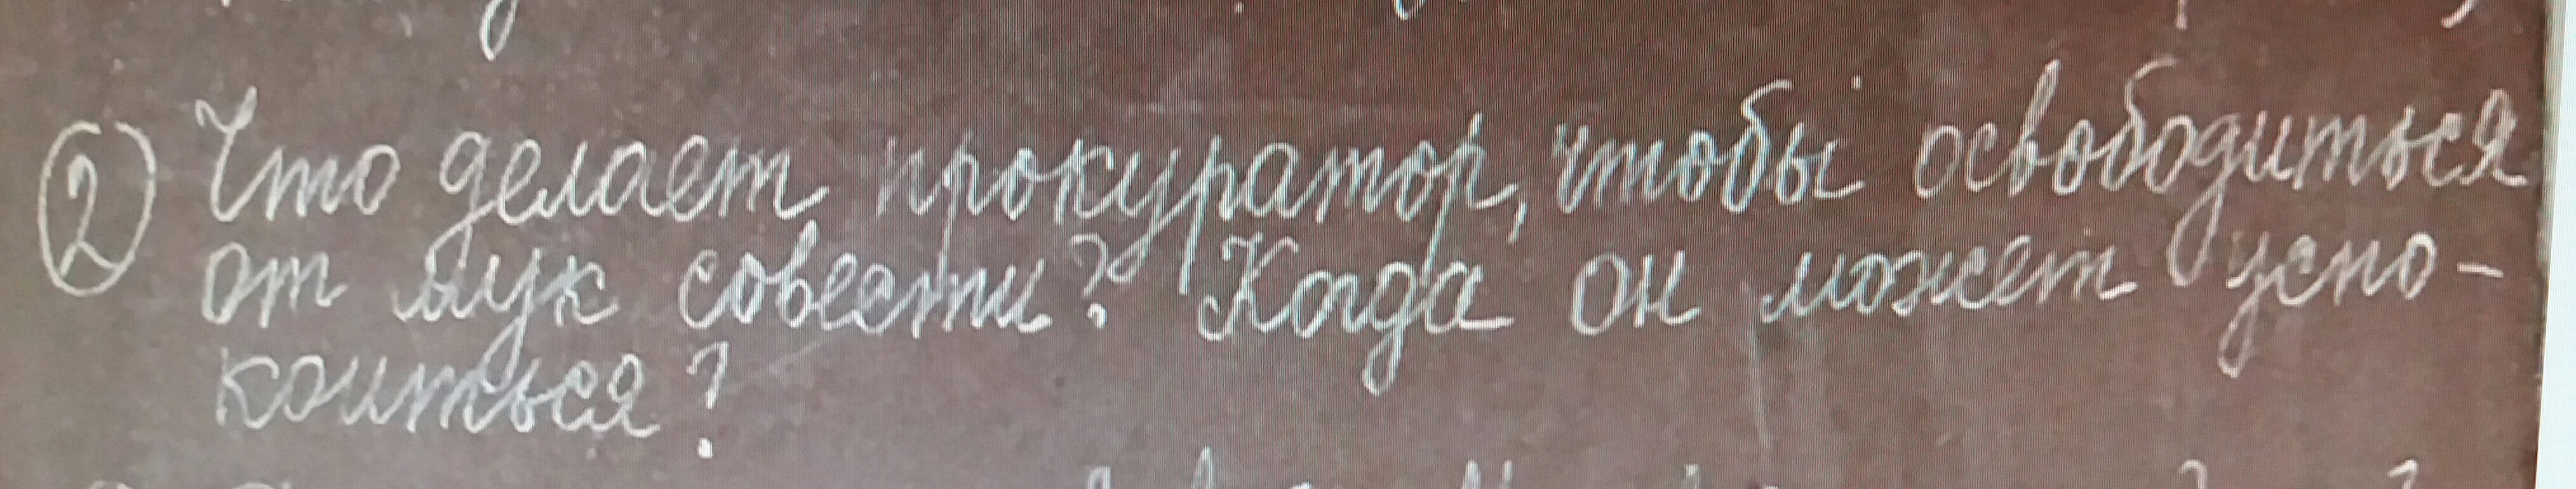 ② Что делает прокуратор, чтобы освободиться
от мук совести? Когда он может успо-
коиться?